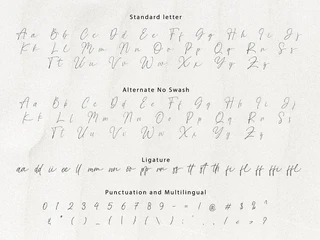 Standard letter
Aa Bb Cc Dd Ee Ff Gg Hh Ii Jj
Kk Ll Mm Nn Oo Pp Qq Rr Ss
Tt Uu Vv Ww Xx Yy Zz
Alternate No Swash
Aa Bb Cc Dd Ee Ff Gg Hh Ii Jj
Kk Ll Mm Nn Oo Pp Qq Rr Ss
Tt Uu Vv Ww Xx Yy Zz
Ligature
aa dd ii ee ll mm nn oo pp
Punctuation and Multilingual
0 1 2 3 4 5 6 7 8 9 - = ! @ # $ % ^
& * ( ) _ { } [ ] \